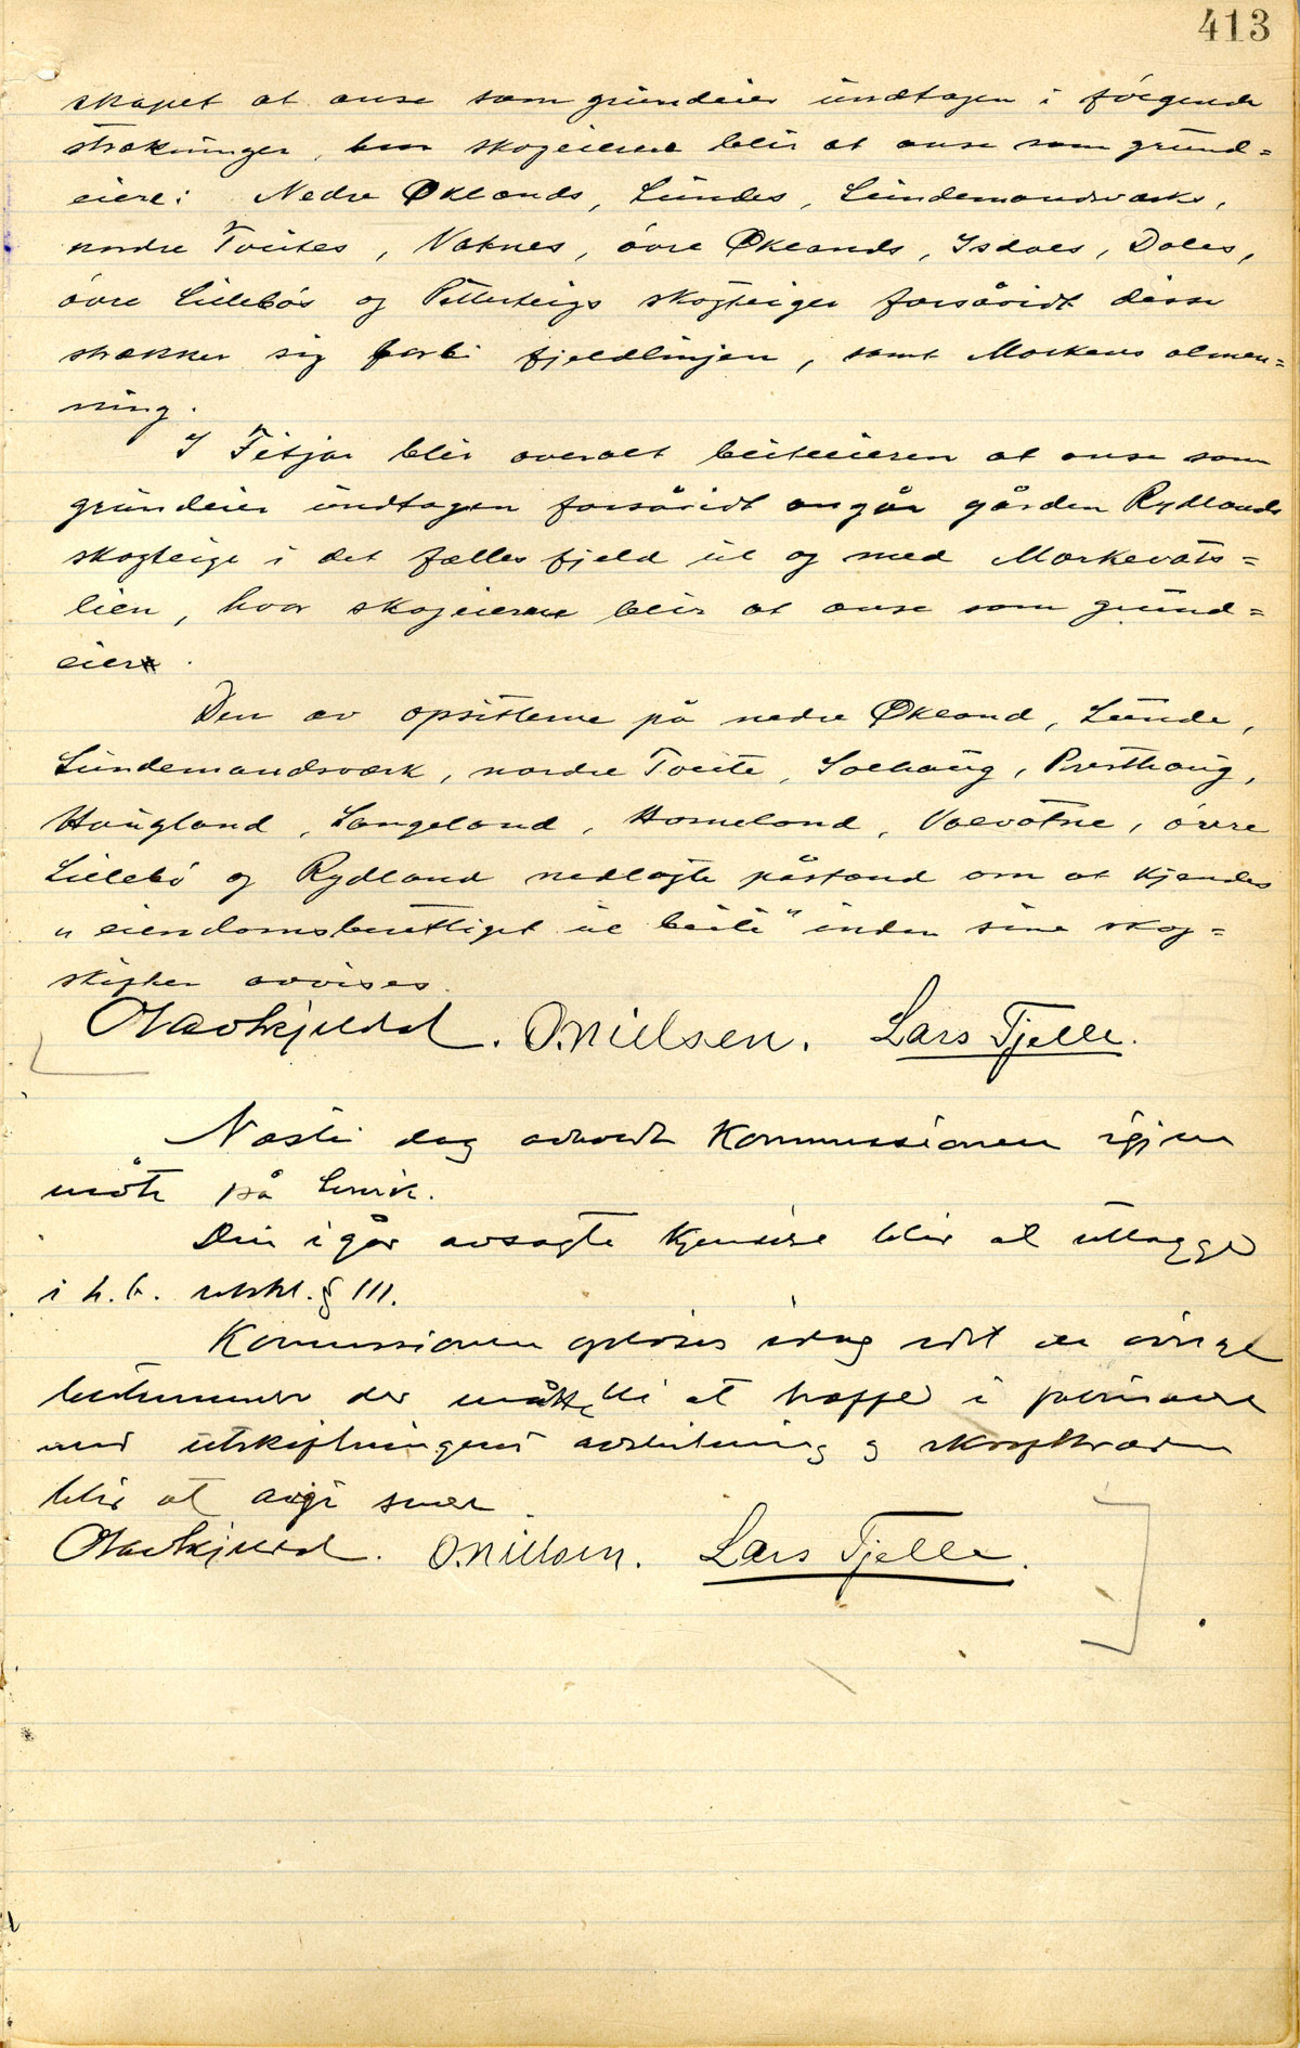 413
skapet at anse som grundeier undtagen i følgende
strækninger, hvor skogeierne blir at anse som grund=
eiere: Nedre Øklands, Lundes, Lundemandsværks,
nordre Tveites, Vatnes, øvre Øklands, Isdals, Dales,
øvre Lillebøs og Petterteigs skogteiger forsåvidt disse
strækker sig forbi fjeldlinjen, samt Morkens almen=
ning.
I Fitjar blir overalt beiteieren at anse som
grundeier undtagen forsåvidt angår gården Rydlands
skogteige i det fælles fjeld til og med Morkevats=
lien, hvor skogeierne blir at anse som grund=
eier.
Den av opsitterne på nedre Økland, Lunde,
Lundemandsværk, nordre Tveite, Solhaug, Presthaug,
Haugland, Langeland, Homeland, Valvatne, øvre
Lillebø og Rydland nedlagte påstand om at kjendes
"eiendomsberettiget til beite" inden sine skog=
skifter avvises.
Olavkjeldal. O. Nielsen. Lars Tjelle.
Næste dag avholdt Kommissionen igjen
møte på Lervik.
Den igår avsagte kjendelse blir at utlægge
i h.t. utskl. § 111.
Kommissionen opløses idag idet de øvrige
bestemmelser der måtte bli at træffe i forbindelse
med utskiftningens avslutning og
blir at avgi senere
Olavkjeldal. O. Nielsen. Lars Tjelle.